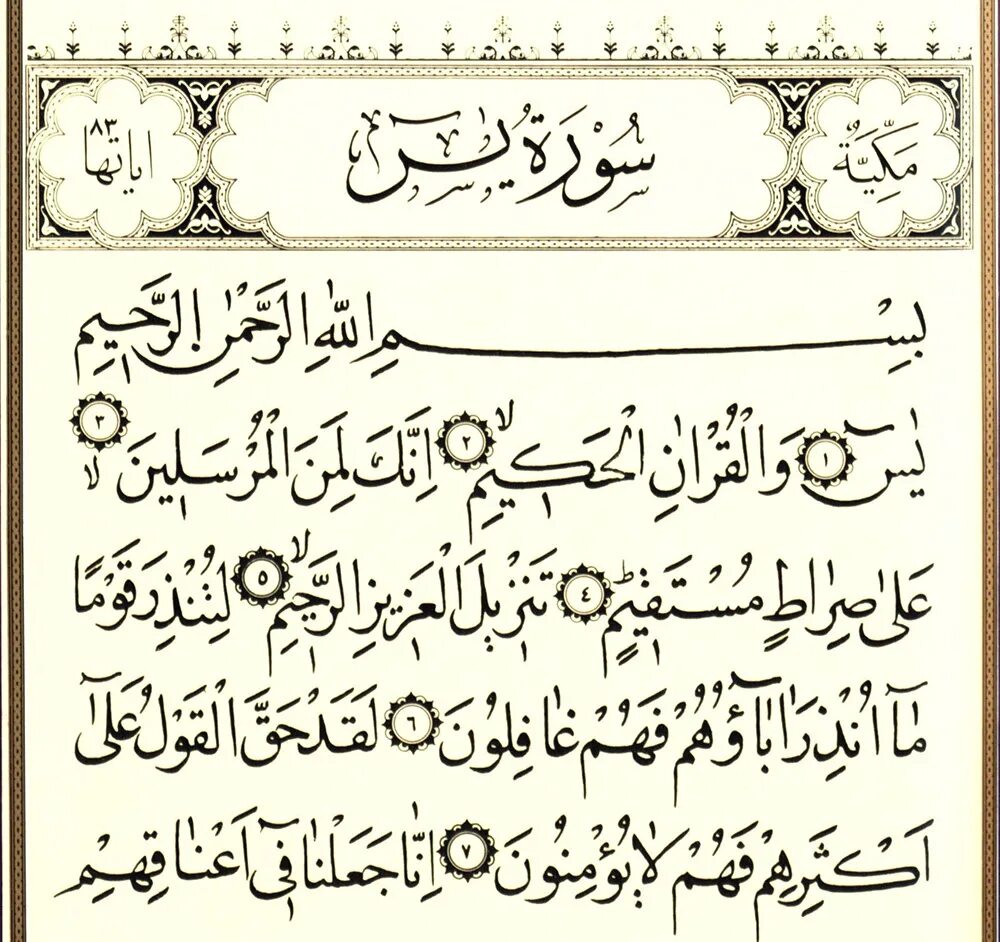 مَكِّيَّةٌ سُوْرَةُ يٰسٓ اياتها ٨٣
بِسْمِ اللّٰهِ الرَّحْمٰنِ الرَّحٖيمِ
يٰسٓ ﴿١﴾ وَالْقُرْاٰنِ الْحَكٖيمِ ۙ ﴿٢﴾ اِنَّكَ لَمِنَ الْمُرْسَلٖينَ ۙ ﴿٣﴾
عَلٰى صِرَاطٍ مُسْتَقٖيمٍ ؕ ﴿٤﴾ تَنْزٖيلَ الْعَزٖيزِ الرَّحٖيمِ ۙ ﴿٥﴾ لِتُنْذِرَ قَوْمًا
مَٓا اُنْذِرَ اٰبَٓاؤُهُمْ فَهُمْ غَافِلُونَ ﴿٦﴾ لَقَدْ حَقَّ الْقَوْلُ عَلٰٓى
اَكْثَرِهِمْ فَهُمْ لَا يُؤْمِنُونَ ﴿٧﴾ اِنَّا جَعَلْنَا فٖٓى اَعْنَاقِهِمْ